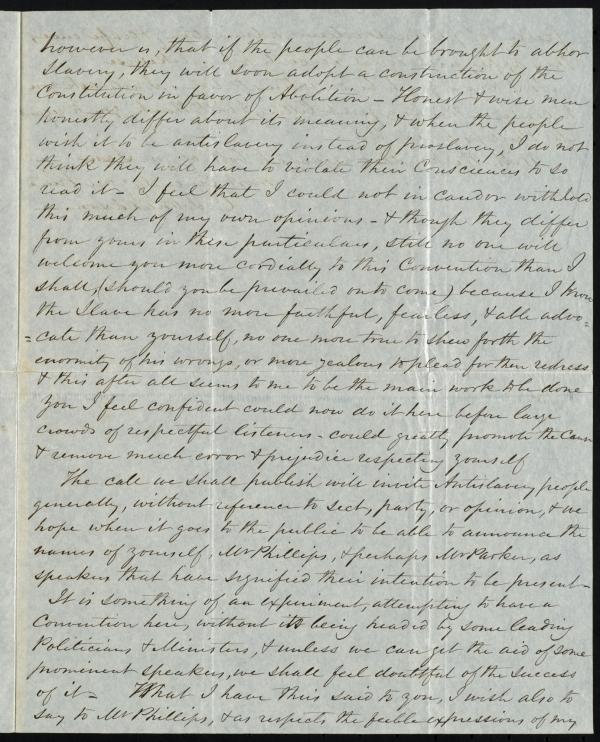 however is, that if the people can be brought to abhor
Slavery, they will soon adopt a construction of the
Constitution in favor of Abolition - Honest & wise men
honestly differ about its meaning, & when the people
wish it to be antislavery instead of proslavery, I do not
think they will have to violate their Consciences to so
read it - I feel that I could not in candor withhold
this much of my own opinions - & though they differ
from yours in these particulars, still no one will
welcome you more cordially to this Convention than I
shall, (should you be prevailed on to come) because I know
the Slave has no more faithful, fearless, & able advo=
=cate than yourself, no one more true to shew forth the
enormity of his wrongs, or more zealous to plead for their redress
& this after all seems to me to be the main work to be done
you I feel confident could now do it here before large
crowds of respectful listeners - could greatly promote the Cause
& remove much error & prejudice respecting yourself
The call we shall publish will invite Antislavery people
generally, without reference to sect, party, or opinion, & we
hope when it goes to the public to be able to announce the
names of yourself, Mr Phillips, & perhaps Mr Parker, as
speakers that have signified their intention to be present -
It is something of an experiment, attempting to have a
Convention here, without its being headed by some leading
Politicians & Ministers, & unless we can get the aid of some
prominent speakers, we shall feel doubtful of the success
of it - What I have thus said to you, I wish also to
say to Mr Phillips, & as respects the feeble expressions of my